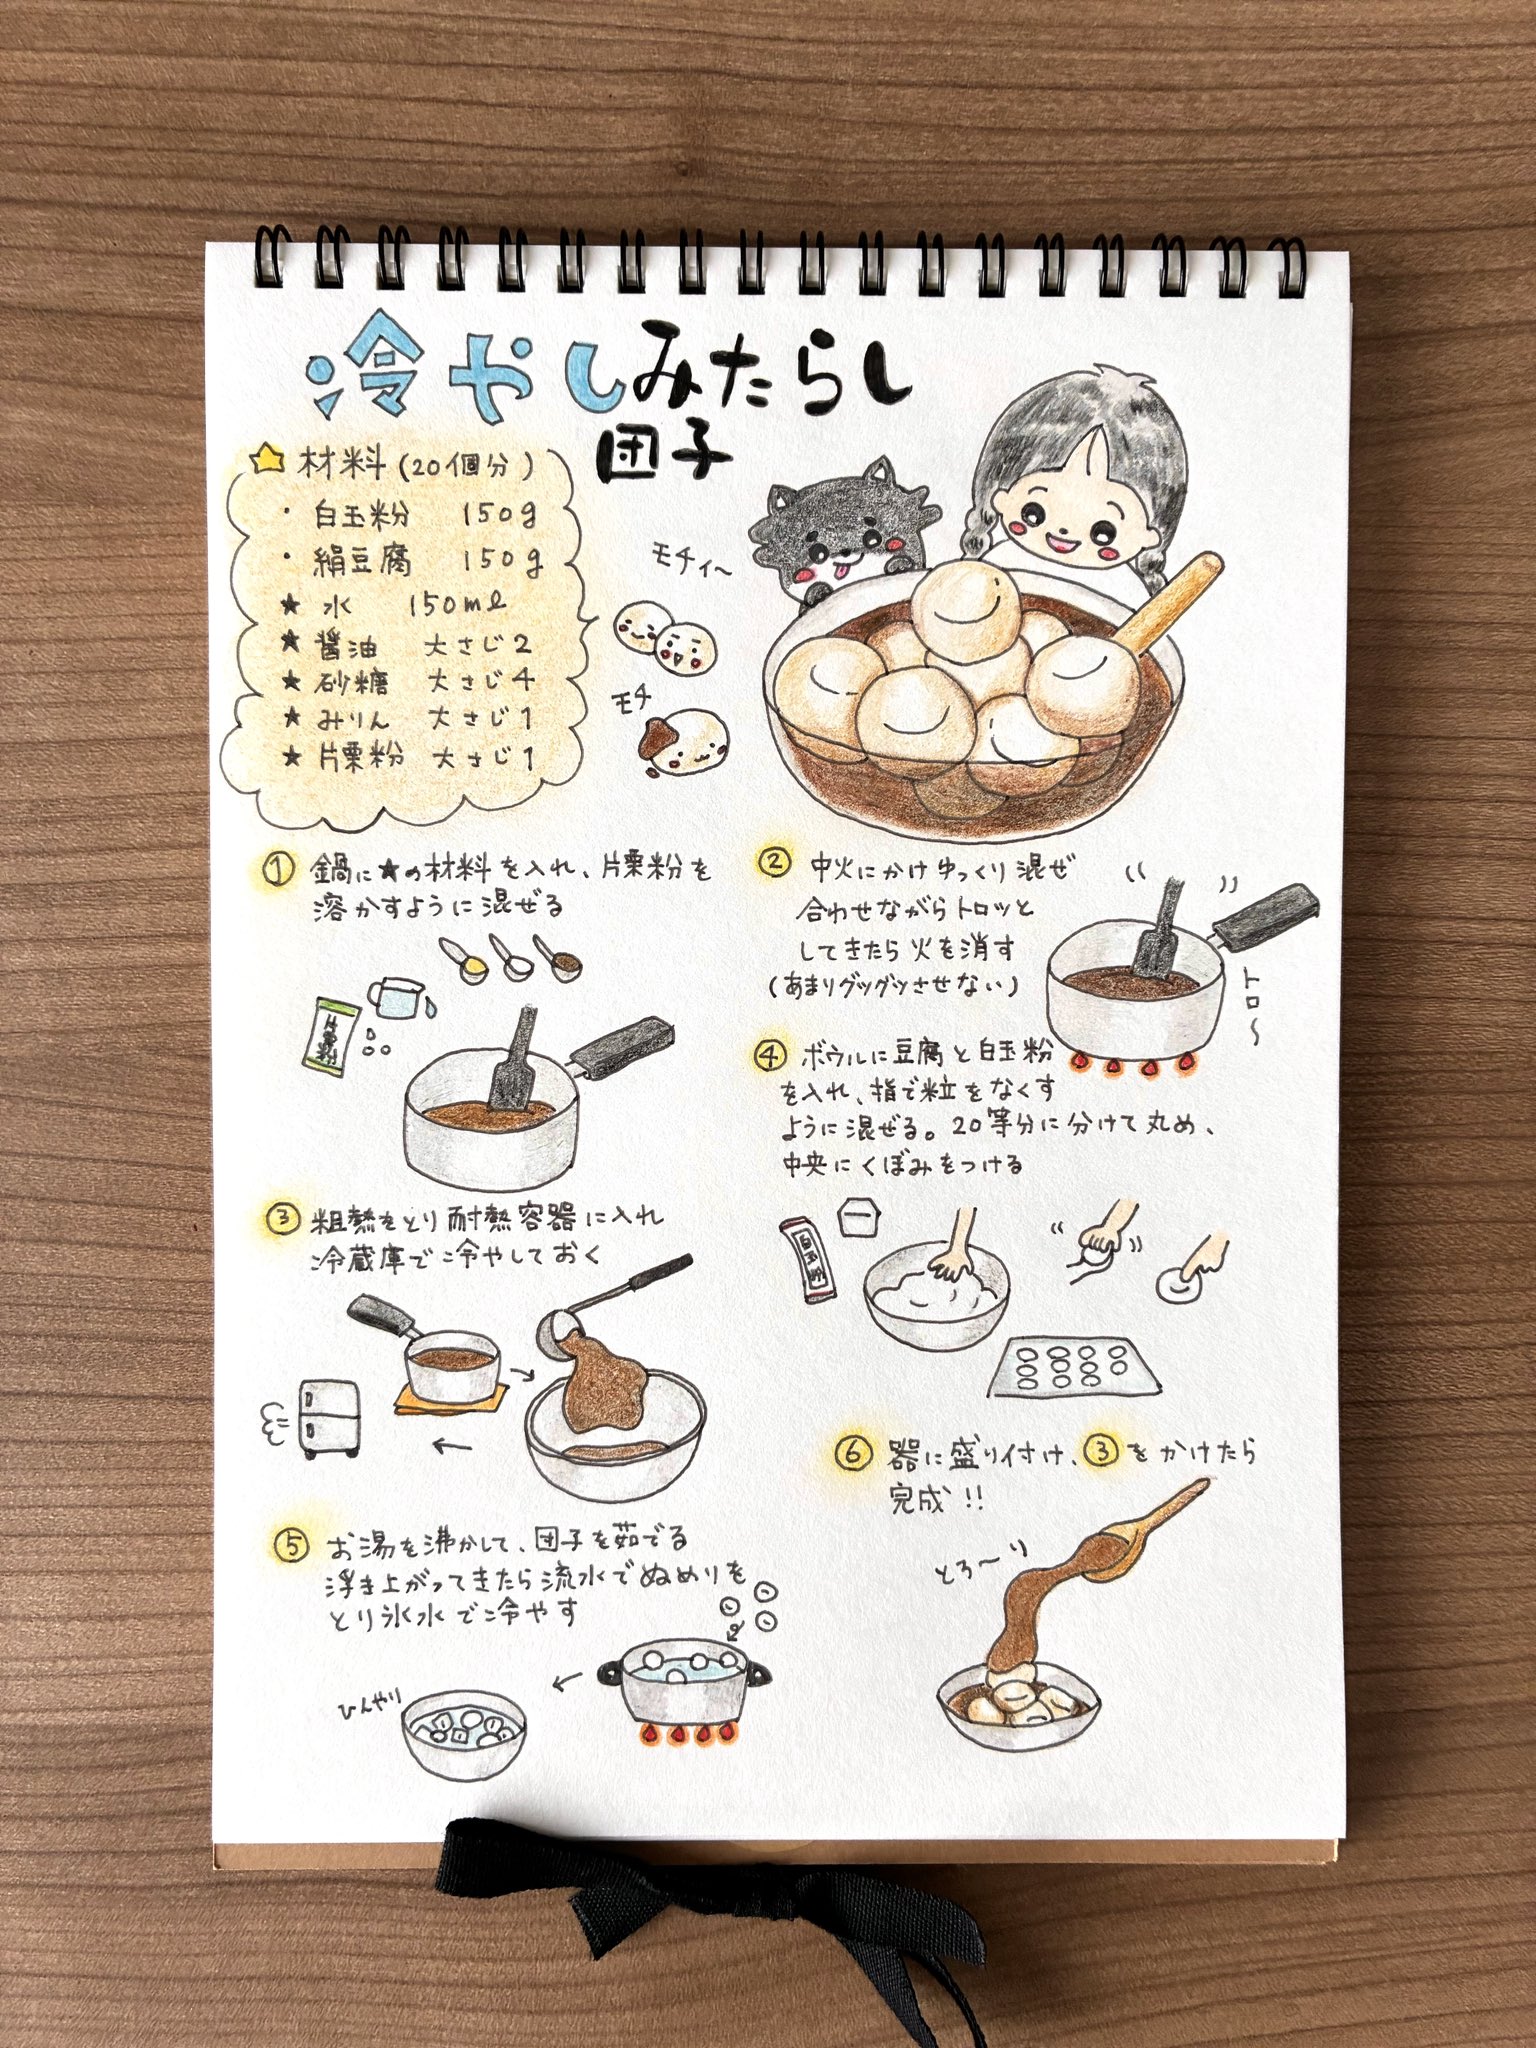 冷やしみたらし
団子
材料(20個分)
・白玉粉 150g
・絹豆腐 150g
★ 水 150ml
★ 醤油 大さじ2
★ 砂糖 大さじ4
★ みりん 大さじ1
★ 片栗粉 大さじ1
モチィ〜
モチ
① 鍋に★の材料を入れ、片栗粉を
溶かすように混ぜる
片栗粉
② 中火にかけゆっくり混ぜ
合わせながらトロッと
してきたら火を消す
(あまりグツグツさせない)
トロ〜
③ 粗熱をとり耐熱容器に入れ
冷蔵庫で冷やしておく
④ ボウルに豆腐と白玉粉
を入れ、指で粒をなくす
ように混ぜる。20等分に分けて丸め、
中央にくぼみをつける
白玉粉
⑤ お湯を沸かして、団子を茹でる
浮き上がってきたら流水でぬめりを
とり氷水で冷やす
ひんやり
⑥ 器に盛り付け、③をかけたら
完成!!
とろ〜り